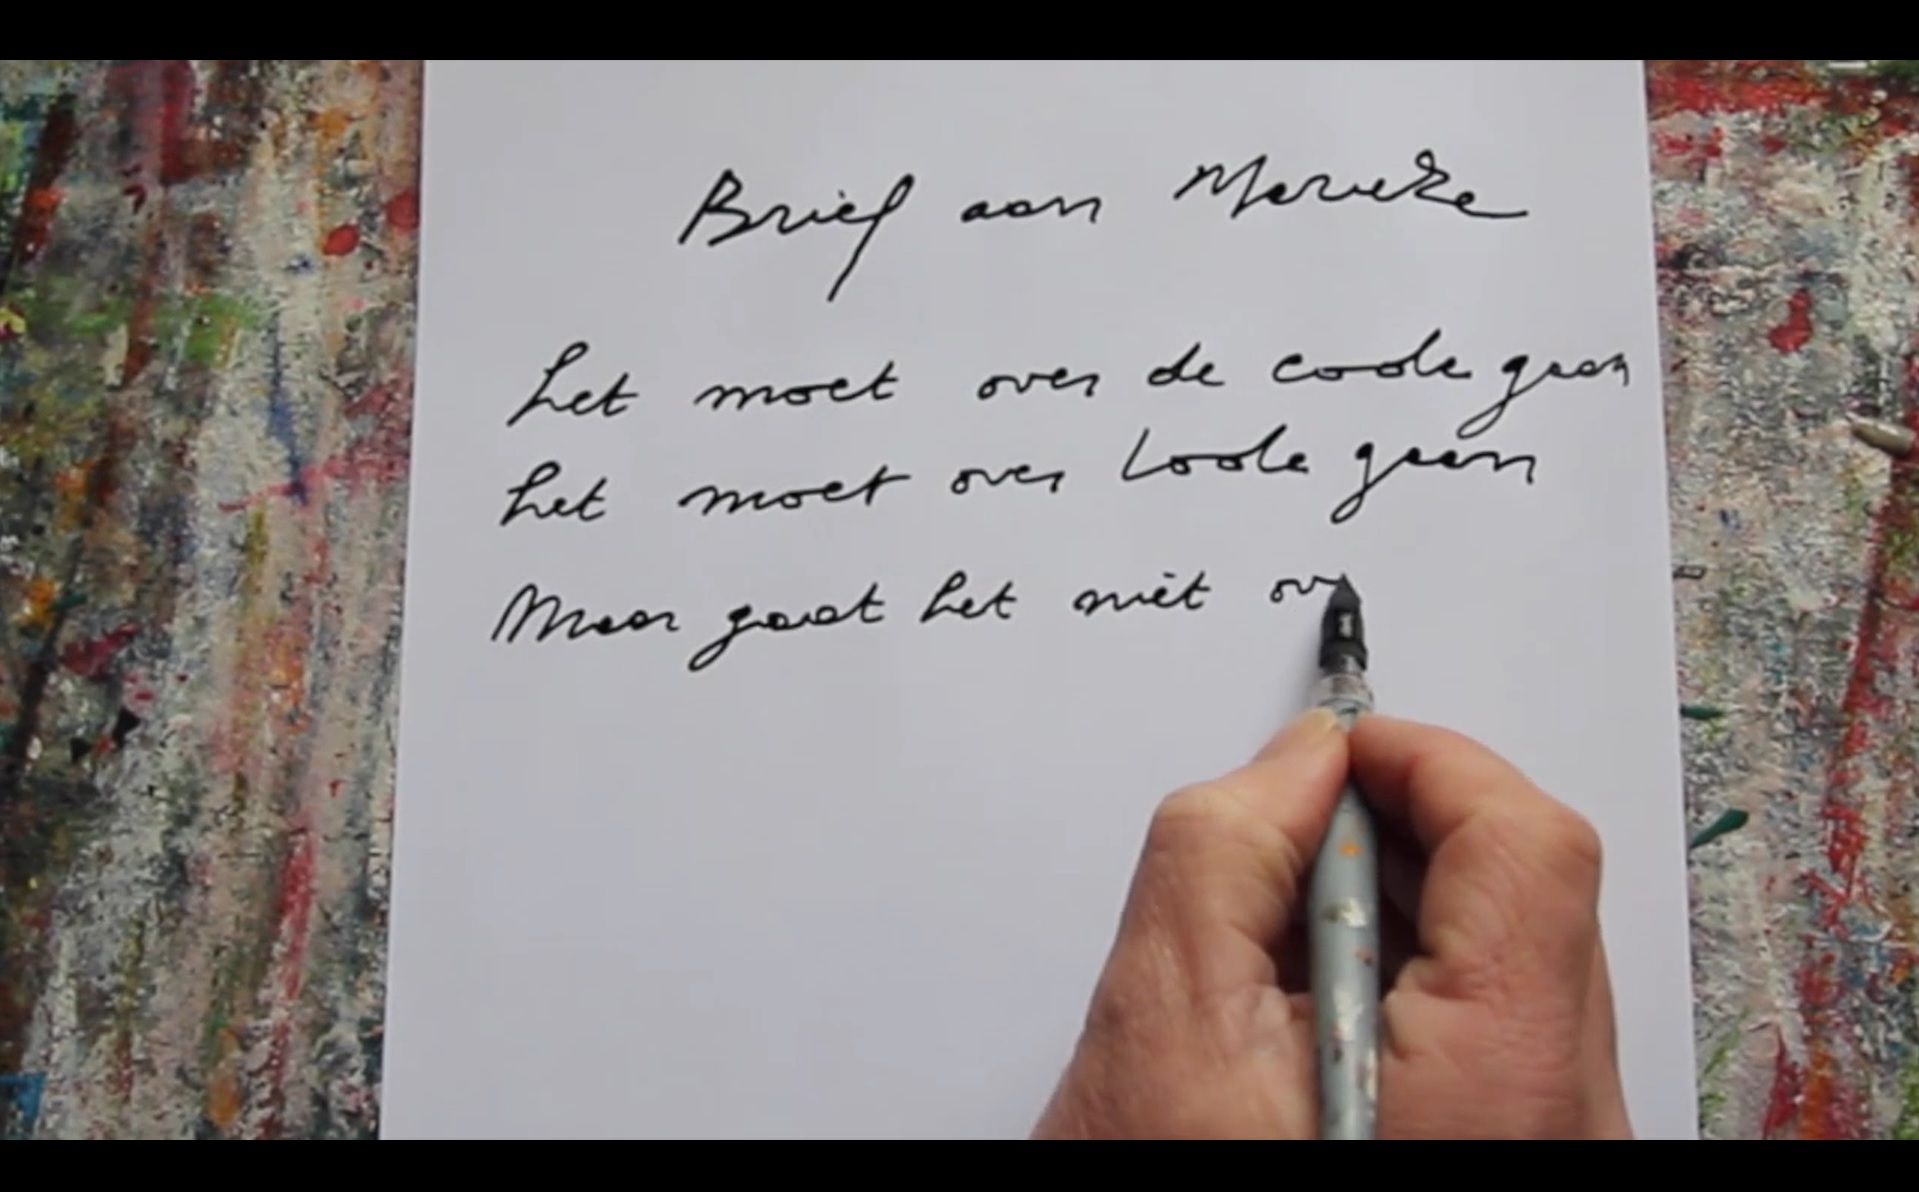 Brief aan Marieke
het moet over de code gaan
het moet over Lode gaan
Maar gaat het niet ov